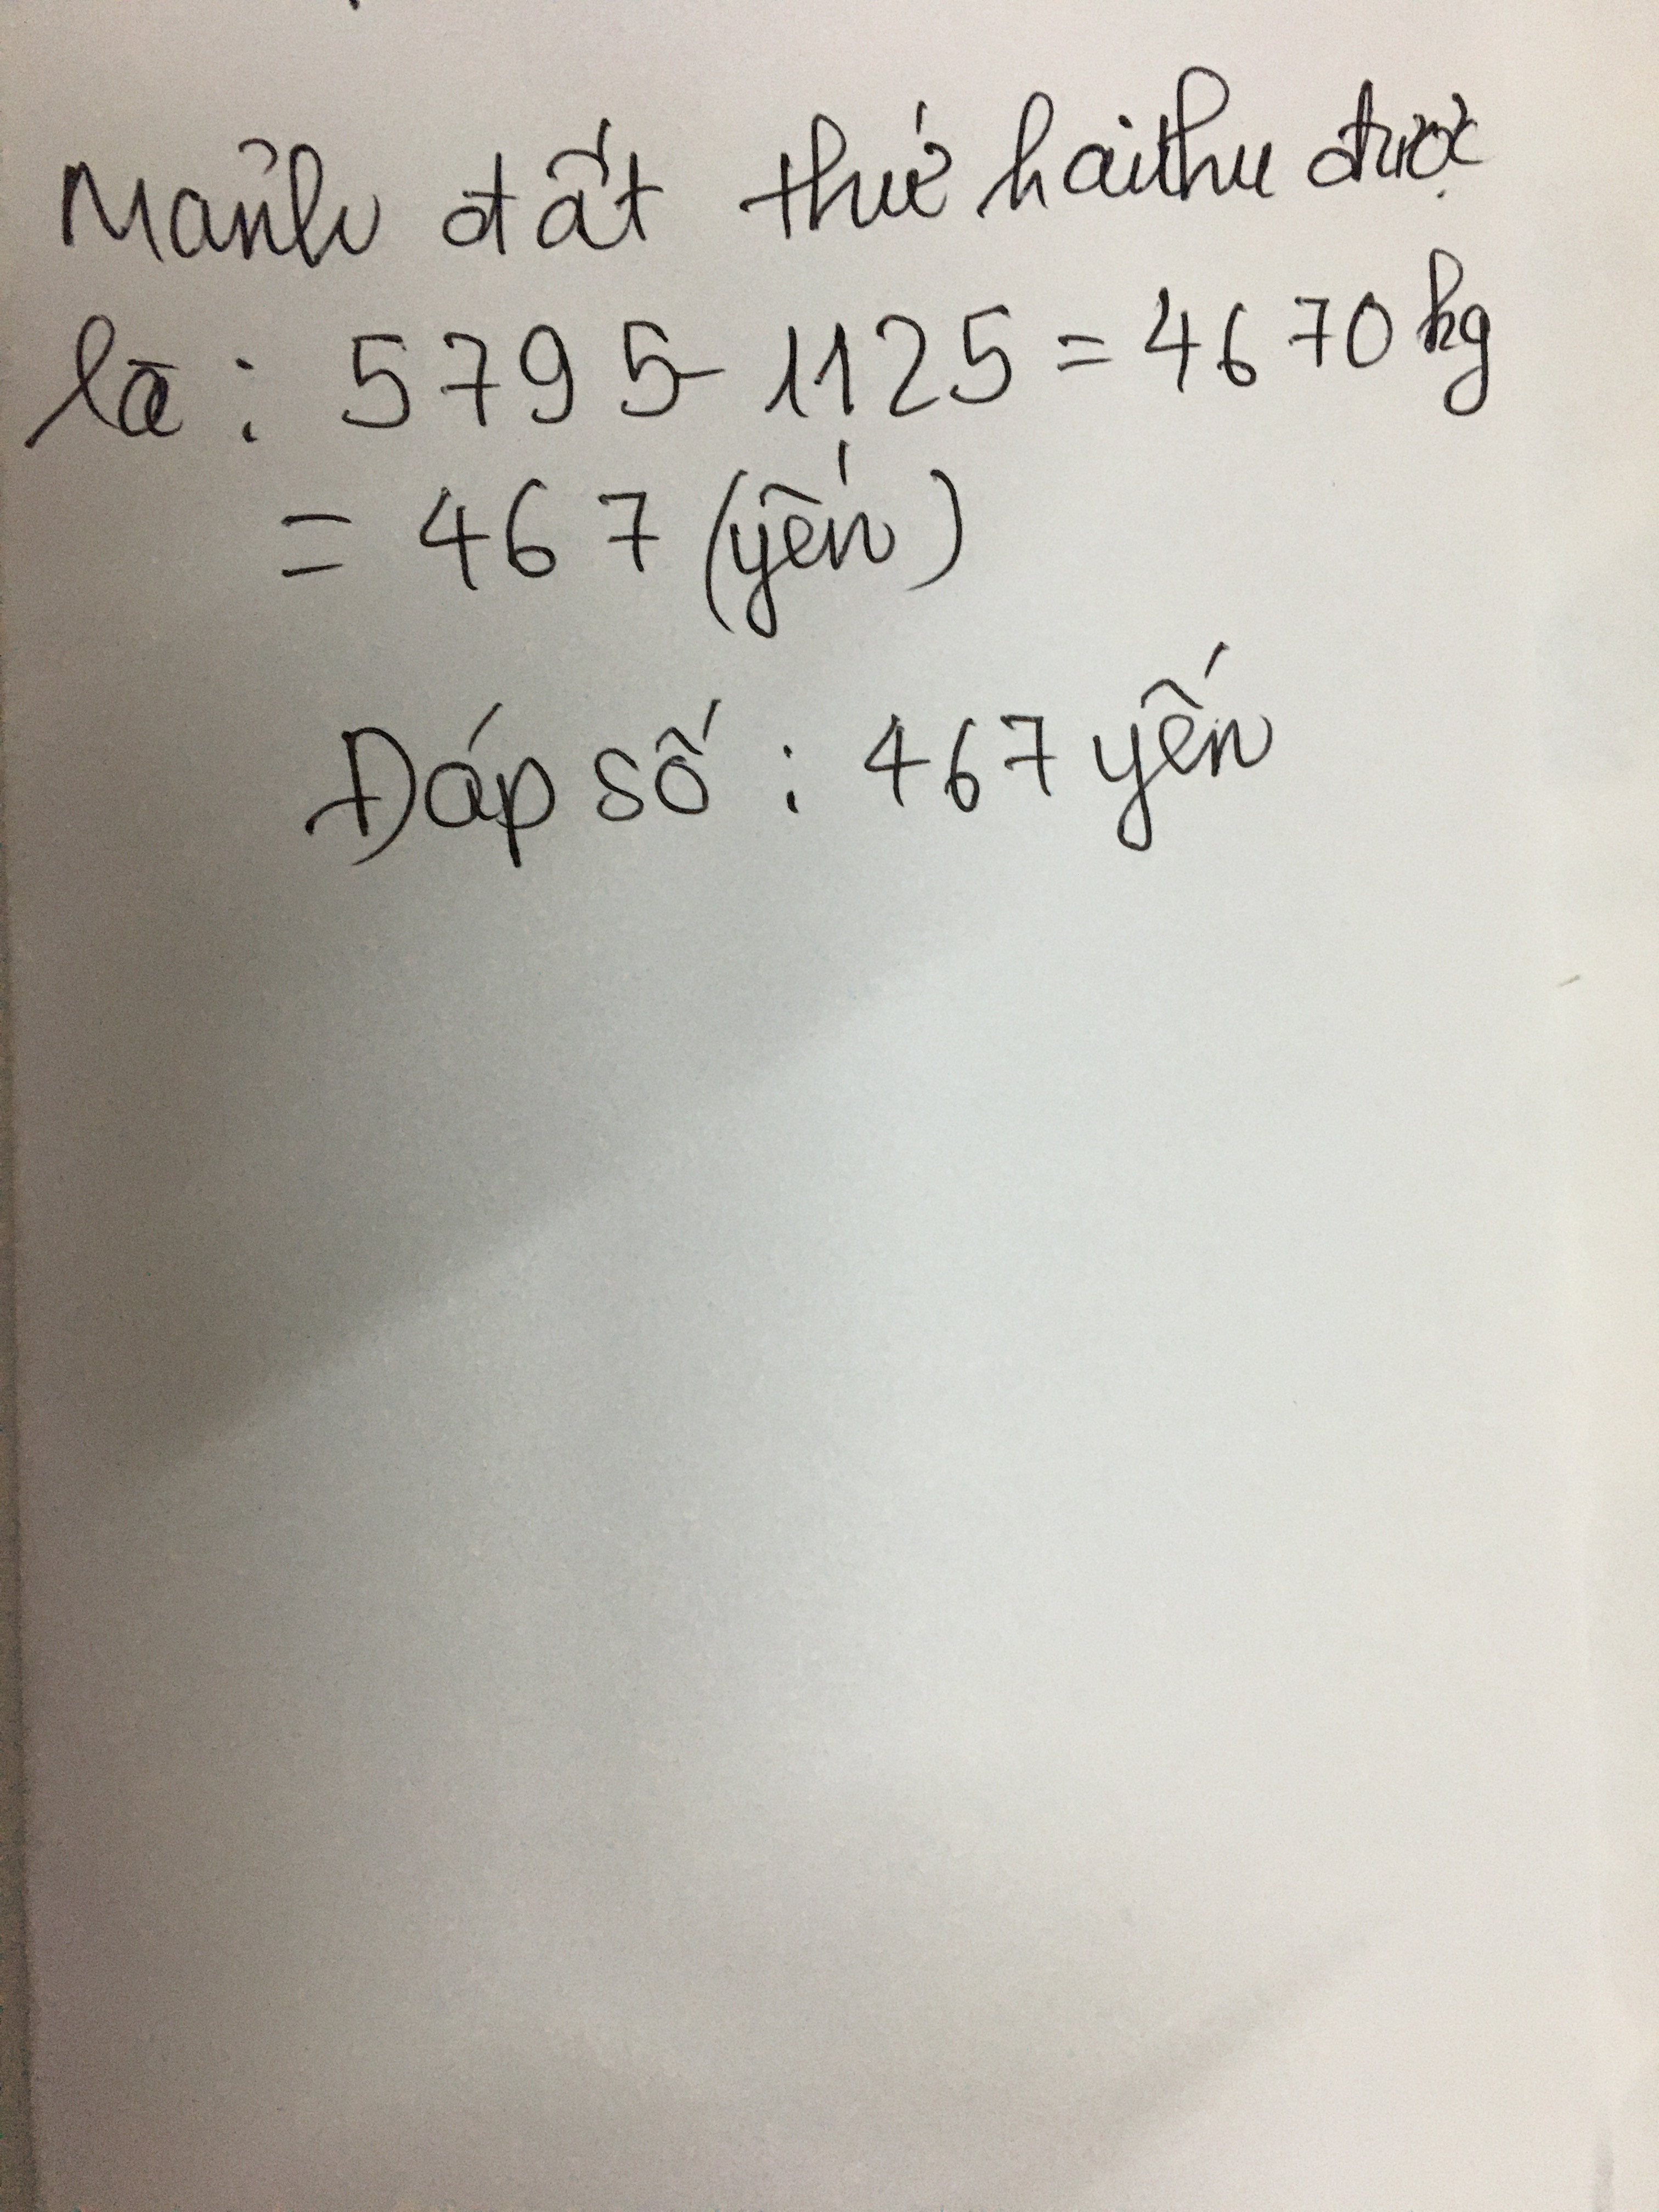 Mảnh đất thứ hai thu được
là : 5795 - 1125 = 4670 kg
= 467 (yến)
Đáp số : 467 yến